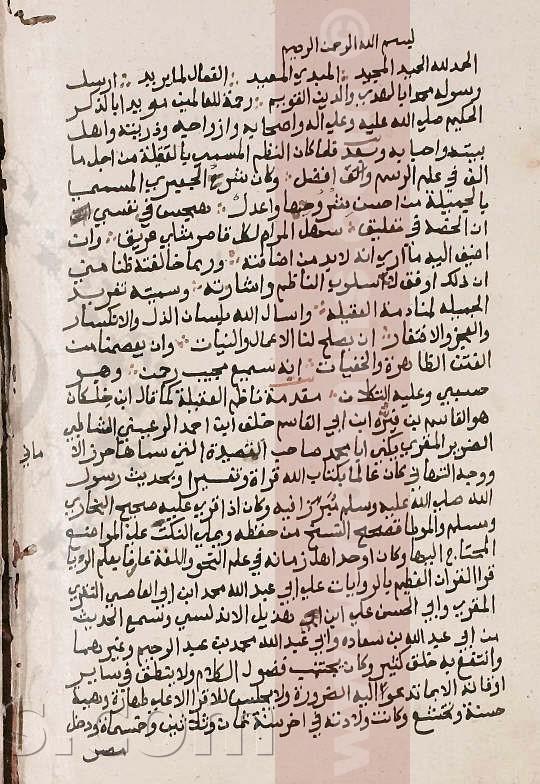 بسم الله الرحمن الرحيم
الحمد لله الحميد المجيد المبدي المعيد الفعال لما يريد ارسل
رسوله محمدا بالهدي والدين القويم رحمة للعالمين مويدا بالذكر
الحكيم صلي الله عليه وعلي اله واصحابه وازواجه وذريته واهل
بيته واحبابه وبعد فلما كان النظم المسمي بالعقيلة من اجل ما
الف في علم الرسم وكان شرح الجعبري المسمي
بالجميلة من احسن شروحها واعدل هجس في نفسي
ان الخصه في تعليق سهل المرام لكل قاصر مثلي غريق وان
اضيف اليه ما اري انه لابد من اضافته وربما خالفته ظنا مني
ان ذلك اوفق لاسلوب الناظم واشارته وسميته تغريد
الجميله لمنادمة العقيله واسال الله بلسان الذل والانكسار
والعجز والافتقار ان يصلح لنا الاعمال والنيات وان يعصمنا من
الفتن الظاهرة والخفيات انه سميع مجيب وهو
حسبي وعليه مقدمة ناظم العقيلة كما قال ابن خلكان
هو القاسم بن فيره ابن ابي القاسم خلف ابن احمد الرعيني الشاطبي
الضرير المقري يكني ابا محمد صاحب القصيدة التي سماها حرز الا
ماني
ووجه التهاني كان عالما بكتاب الله قراة وتفسيرا وبحديث رسول
الله صلي الله عليه وسلم مبرزا فيه وكان اذا قري عليه صحيح البخاري
ومسلم والموطا تصحح النسخ من حفظه ويملي النكت علي المواضع
المحتاج اليها وكان اوحد اهل زمانه في علم النحو واللغة عارفا بعلم الرويا
قرا القران العظيم بالروايات علي ابي عبد الله محمد ابن ابي العاصي النفزي
المقري وابي الحسن علي ابن هذيل الاندلسي وسمع الحديث
من ابي عبد الله بن سعاده وابي عبد الله محمد بن عبد الرحيم وغيرهما
وانتفع به خلق كثير وكان يجتنب فضول الكلام ولا ينطق في ساير
اوقاته الا بما تدعو اليه الضرورة ولا يجلس للاقرا الا علي طهارة وهيية
حسنة وتخشع وكانت ولادته في اخر سنة ثمان وثلاثين وخمسماة ودخل
مصر